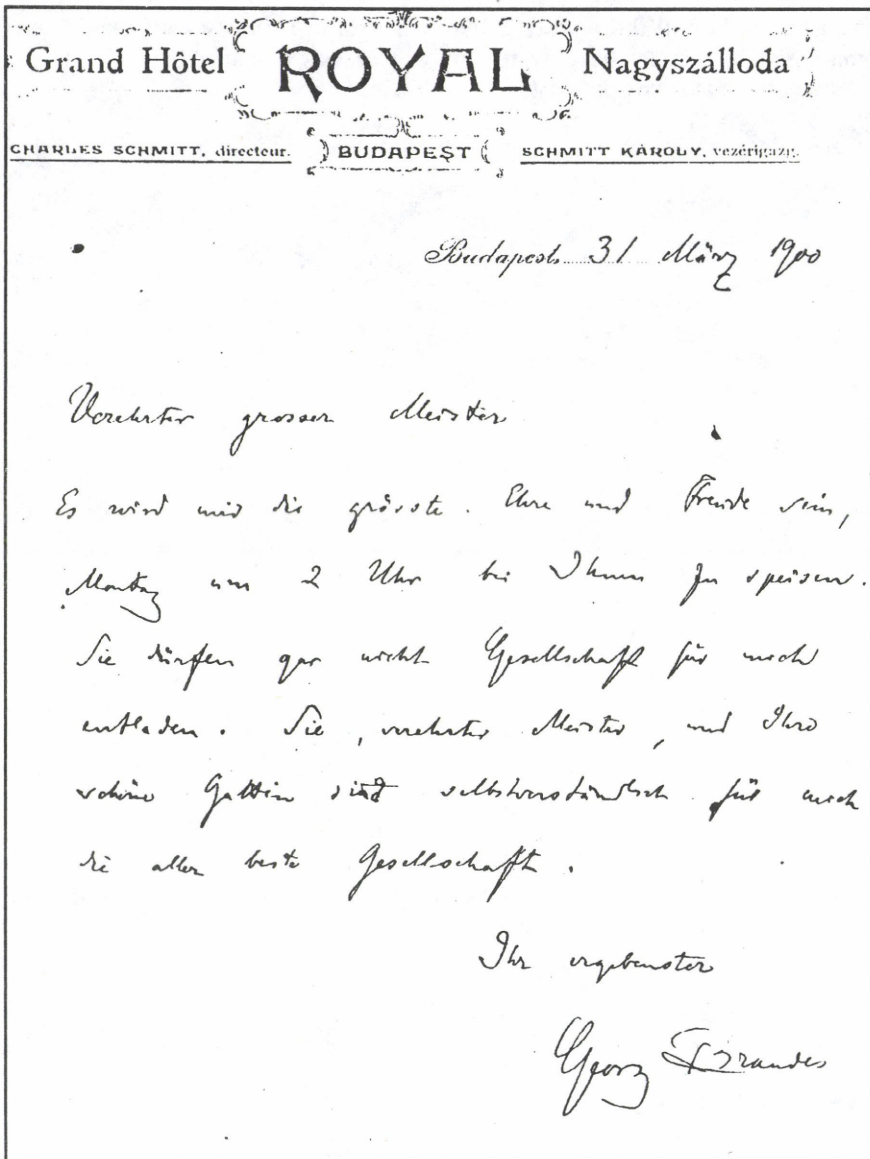 Grand Hôtel ROYAL Nagyszálloda
CHARLES SCHMITT, directeur. BUDAPEST SCHMITT KÁROLY, vezérigazg.
Budapest 31 März 1900
Verehrter grosser Meister
Es wird mir die grösste. Ehre und Freude sein,
Montag um 2 Uhr bei Ihnen zu speisen.
Sie dürfen gar nicht Gesellschaft für mich
einladen. Sie, verehrter Meister, und Ihre
schöne Gattin sind selbstverständlich für mich
die aller beste Gesellschaft.
Ihr ergebenster
Georg Brandes